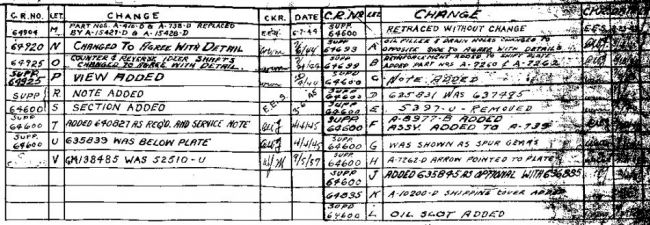 C.R.NO. LET. CHANGE CKR. DATE
64904 M PART NOS. A-416-D & A-738-D REPLACED
BY A-15421-D & A-15428-D 6-7-44
64920 N CHANGED TO AGREE WITH DETAIL
64925 O COUNTER & REVERSE IDLER SHAFTS
CHANGED TO AGREE WITH DETAIL
SUPP. 64925 P VIEW ADDED
SUPP R NOTE ADDED
64600 S SECTION ADDED E.E.S.
SUPP 64600 T ADDED 640827 AS REQ'D. AND SERVICE NOTE 4/4/45
SUPP 64600 U 635839 WAS BELOW PLATE 4/4/45
V GM/38485 WAS 52510-U 9/5/37
C.R.NO. LET. CHANGE
SUPP 64600 RETRACED WITHOUT CHANGE
SUPP 64699 A OIL FILLER & DRAIN HOLES CHANGED TO
OPPOSITE SIDE TO AGREE WITH DETAILS
SUPP 64699 B REINFORCEMENT ADDED TO SHIFT PLATE
ADDED PART NOS. A-7260 & A-7262
SUPP 64600 C NOTE ADDED
SUPP 64600 D 635831 WAS 637495
SUPP 64600 E 5397-U - REMOVED
SUPP 64600 F A-8977-B ADDED
ASSY. ADDED TO A-735
SUPP 64600 G WAS SHOWN AS SPUR GEARS
SUPP 64600 H A-7262-D ARROW POINTED TO PLATE
SUPP 64600 J ADDED 635845 AS OPTIONAL WITH 636885
64835 K A-10200-D SHIPPING COVER ADDED
SUPP 64600 L OIL SLOT ADDED